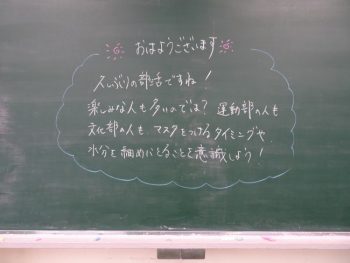 おはようございます
久しぶりの部活ですね！
楽しみな人も多いのでは？運動部の人も
文化部の人も、マスクをつけるタイミングや
水分を細めにとることを意識しよう！